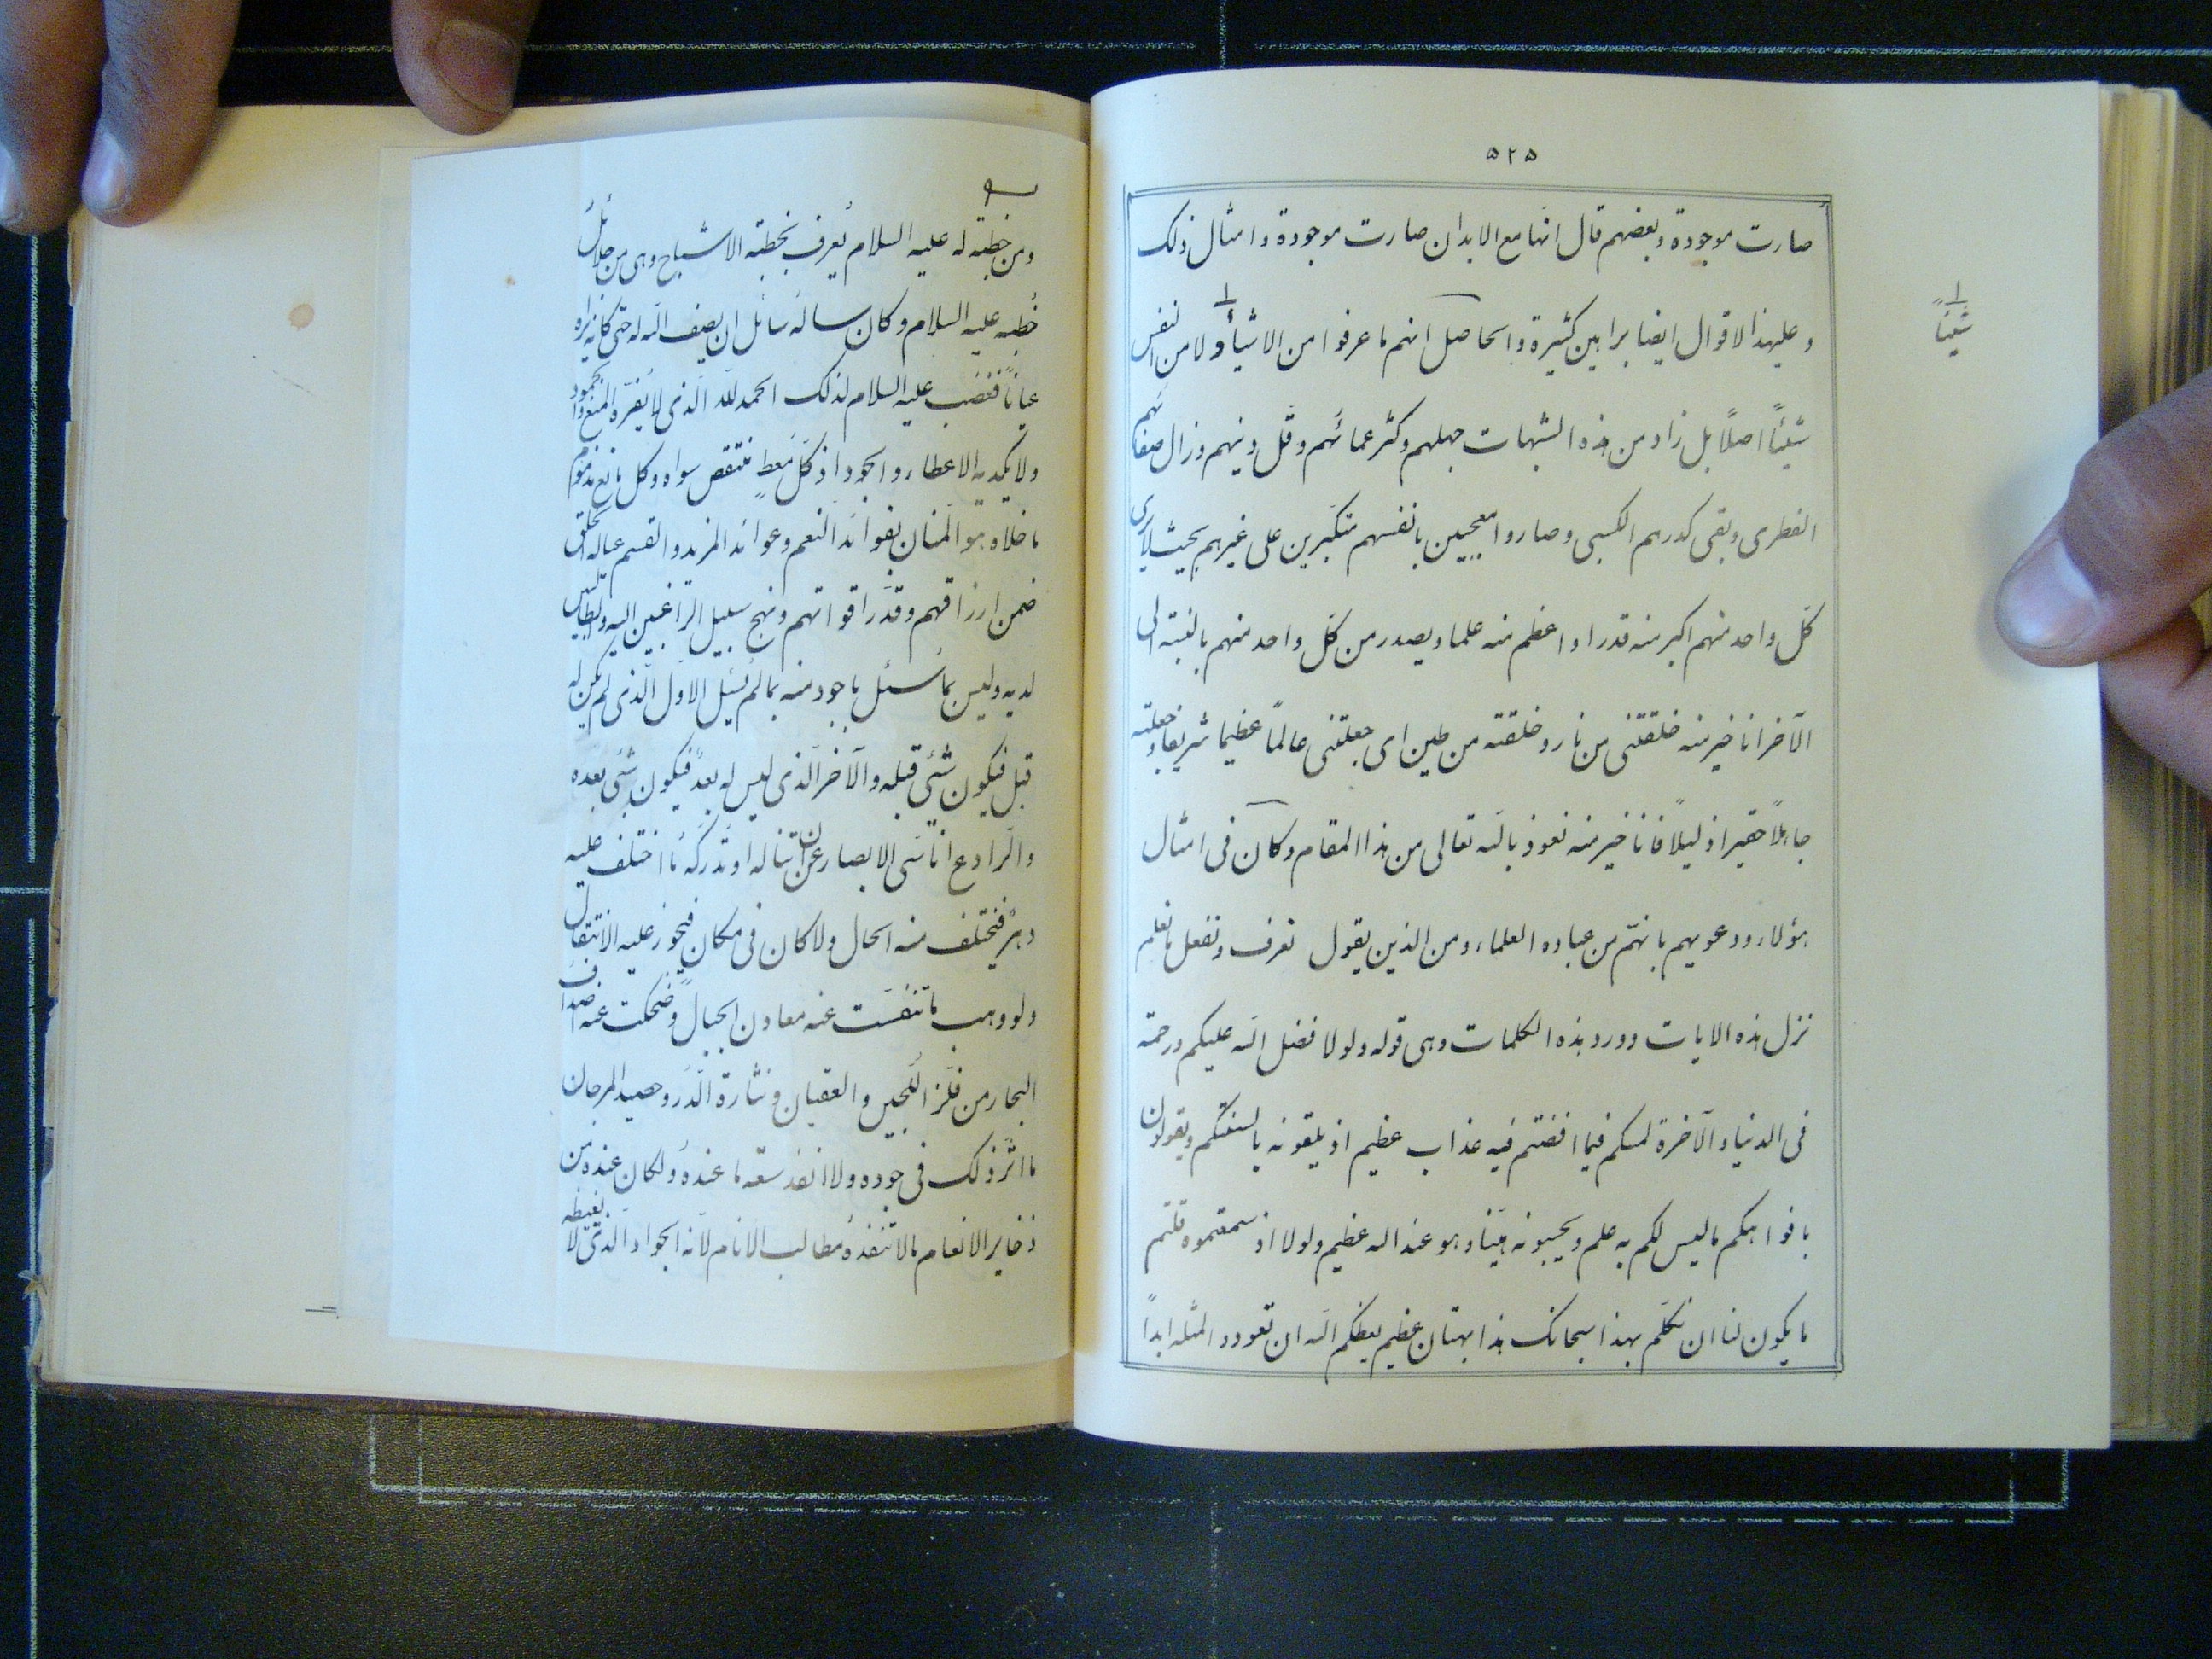 ٥٢٥
صارت موجودة وبعضهم قال انها مع الابدان صارت موجودة وامثال ذلك
وعليهذا الاقوال ايضا براهين كثيرة والحاصل انهم ما عرفوا من الاشياء ولا من النفس
شيئاً
شيئاً اصلاً بل زاد من هذه الشبهات جهلهم وكثر عمائهم وقل دينهم وزال صفائهم
الفطرى وبقى كدرهم الكسبى وصاروا معجبين بانفسهم متكبرين على غيرهم بحيث لا يرى
كل واحد منهم اكبر منه قدرا واعظم منه علما ويصدر من كل واحد منهم بالنسبة الى
الآخر انا خير منه خلقتنى من نار وخلقته من طين اى جعلتنى عالماً عظيما شريفا وجعلته
جاهلاً حقيرا ذليلاً فانا خير منه نعوذ بالله تعالى من هذا المقام وكان فى امثال
هؤلاء ودعويهم بانهم من عباده العلماء ومن الذين يقول نعرف ونفعل ما نعلم
نزل هذه الايات وورد هذه الكلمات وهى قوله ولولا فضل الله عليكم ورحمته
فى الدنيا والآخرة لمسكم فيما افضتم فيه عذاب عظيم اذ يلقونه بالسنتكم ويقولون
بافواهكم ما ليس لكم به علم ويحسبونه هيّنا وهو عند الله عظيم ولولا اذ سمعتموه قلتم
ما يكون لنا ان نتكلّم بهذا سبحانك هذا بهتان عظيم يعظكم الله ان تعودوا لمثله ابداً
ومن خطبة له عليه السلام يُعرف بخطبة الاشباح وهى من جلائل
خُطبه عليه السلام وكان ساله سائل ان يصف الله له حتى كانه يراه
عياناً فغضب عليه السلام لذلك الحمد لله الّذى لا يفره المنع والجمود
ولا يكديه الاعطاء والجود اذ كل مُعطٍ منتقص سواه وكل مانع مذموم
ما خلاه هو المنان بفوائد النعم وعوائد المزيد والقسم عياله الخلق
ضمن ارزاقهم وقدّر اقواتهم ونهج سبيل الراغبين اليه والطالبين
لديه وليس بما سئل باجود منه بما لم يُسئل الاول الّذى لم يكن له
قبل فيكون شئى قبله والآخر الّذى ليس له بعد فيكون شئى بعده
والرادع اناسى الابصار عن ان تناله او تدركه ما اختلف عليه
دهر فيختلف منه الحال ولا كان فى مكان فيجوز عليه الانتقال
ولو وهب ما تنفست عنه معادن الجبال وضحكت عنه اصداف
البحار من فلز اللجين والعقيان ونثارة الدر وحصيد المرجان
ما اثّر ذلك فى جوده ولا انفد سعة ما عنده ولكان عنده من
ذخاير الانعام ما لا تنفده مطالب الانام لانه الجواد الّذى لا يغيضه